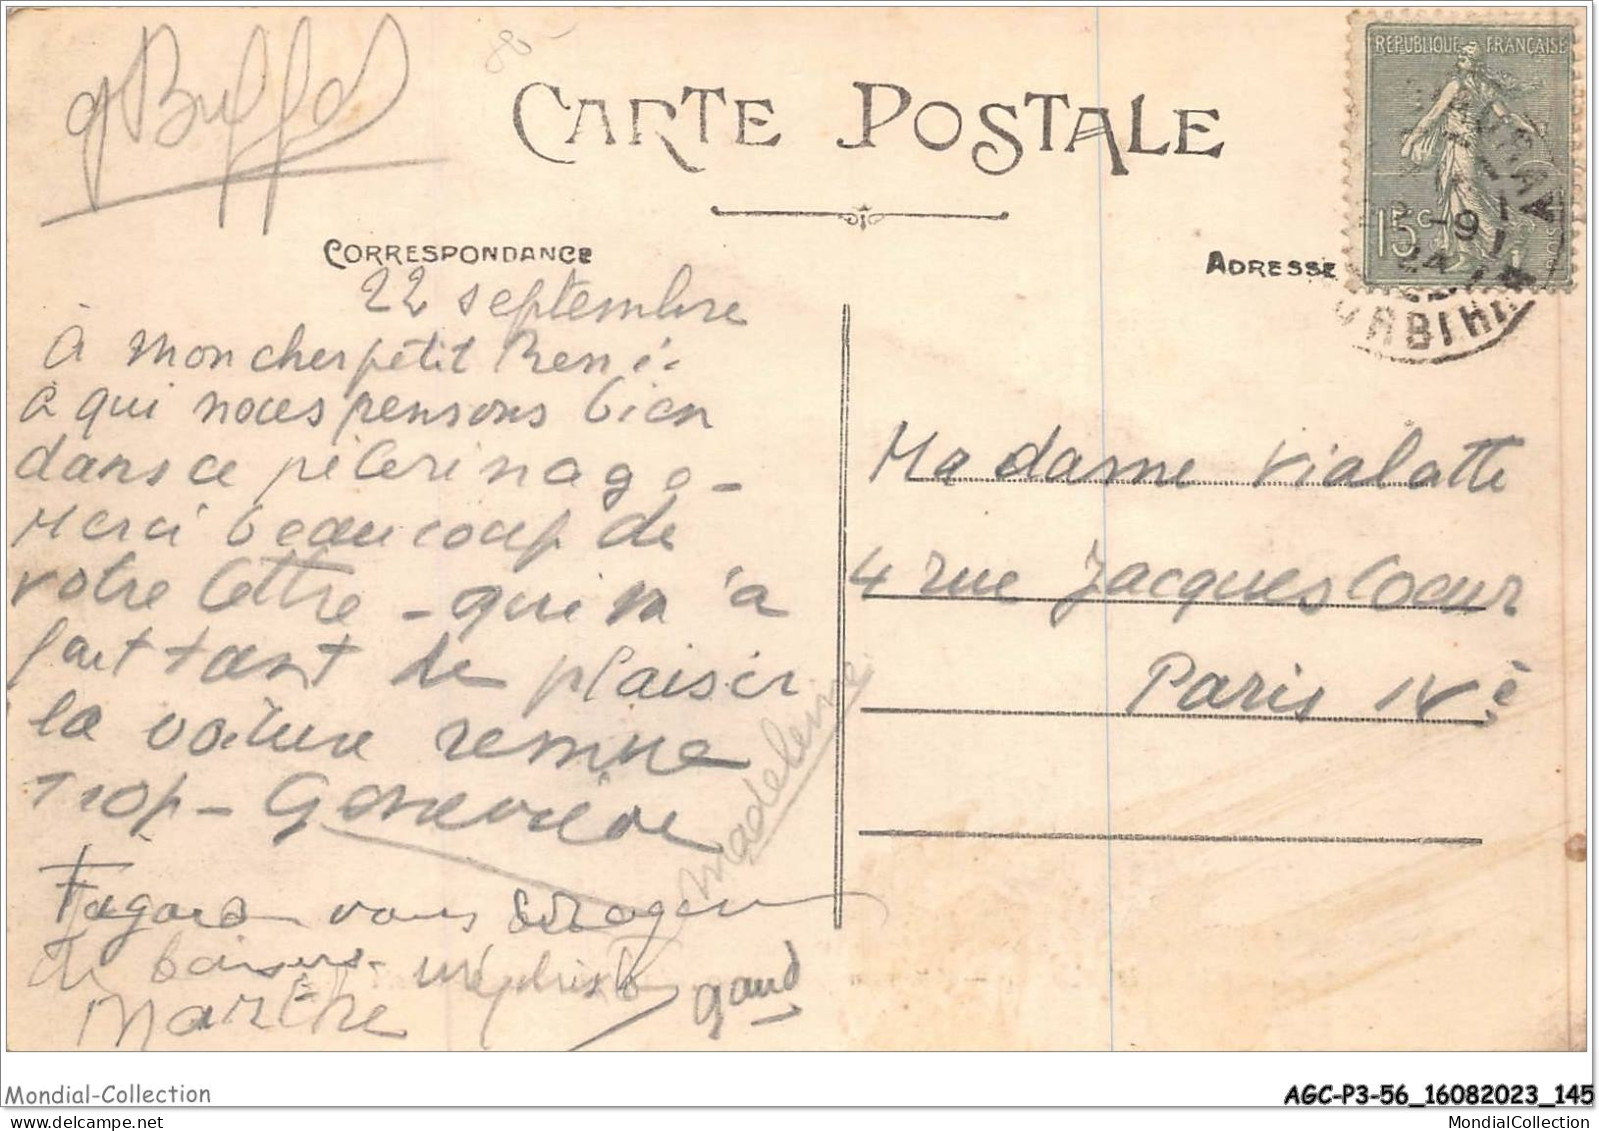 CARTE POSTALE
CORRESPONDANCE
ADRESSE
REPUBLIQUE FRANÇAISE
15c
-9
24
22 septembre
À mon cher petit René
à qui nous pensons bien
dans ce pélerinage -
Merci beaucoup de
votre lettre - qui m'a
fait tant de plaisir
la voiture remue
trop - Geneviève
Madeleine
vous
de baisers -
Marthe
Madame Vialatte
4 rue Jacques Coeur
Paris IVè
Mondial-Collection
AGC-P3-56_16082023_145
MondialCollection